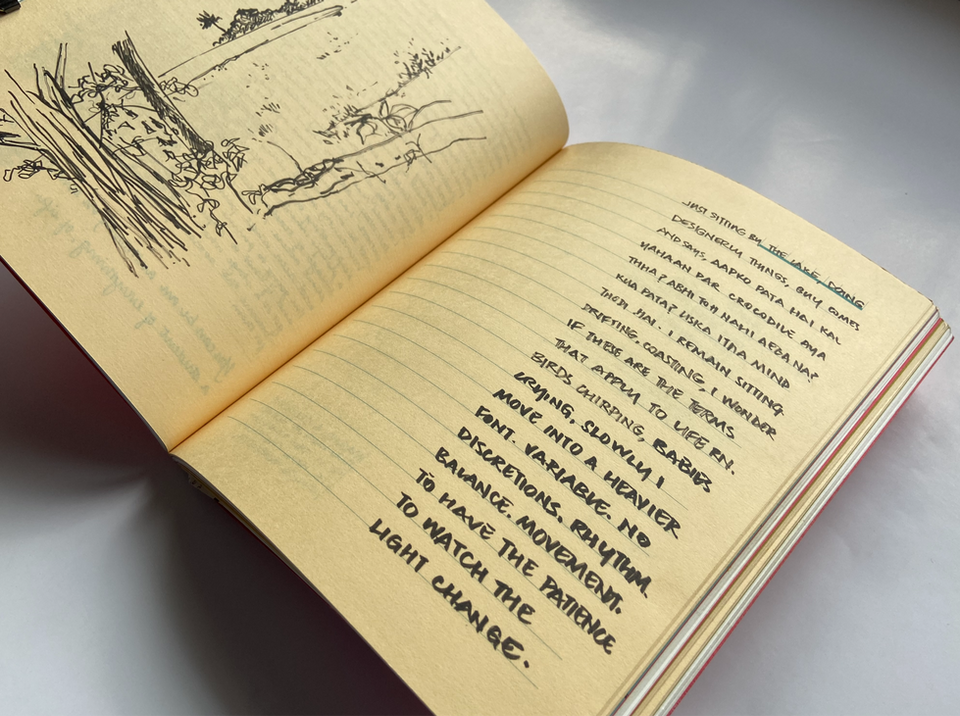 JUST SITTING BY THE LAKE, DOING
DESIGNERLY THINGS, GUY COMES
AND SAYS, AAPKO PATA HAI KAL
YAHAAN PAR CROCODILE AAYA
THHA? ABHI TOH NAHI AEGA NA?
KYA PATA? USKA ITNA MIND
THODI HAI. I REMAIN SITTING
DRIFTING, COASTING, I WONDER
IF THESE ARE THE TERMS
THAT APPLY TO LIFE RN.
BIRDS CHIRPING, BABIES
CRYING, SLOWLY I
MOVE INTO A HEAVIER
FONT. VARIABLE. NO
DISCRETIONS. RHYTHM.
BALANCE. MOVEMENT.
TO HAVE THE PATIENCE
TO WATCH THE
LIGHT CHANGE.